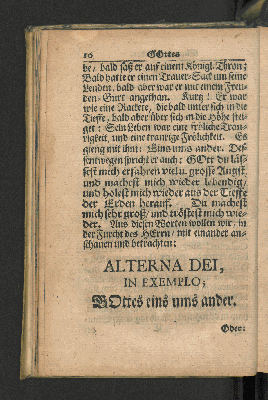 10 GOttes
be, bald saß er auf einem Königl. Thron;
Bald hatte er einen Trauer-Sack um seine
Lenden, bald aber war er mit einem Freu-
den-Gurt angethan. Kurtz! Er war
wie eine Rackete, die bald unter sich in die
Tieffe, bald aber über sich in die Höhe stei-
get: Sein Leben war eine fröliche Trau-
rigkeit, und eine traurige Frölichkeit. Es
gieng mit ihm: Eins ums ander. Des-
sentwegen spricht er auch: GOtt du läs-
sest mich erfahren viel u. grosse Angst,
und machest mich wieder lebendig,
und holest mich wieder aus der Tieffe
der Erden herauf. Du machest
mich sehr groß, und tröstest mich wie-
der. Aus diesen Worten wollen wir, in
der Furcht des HErrn, mit einander an-
schauen und betrachten:
ALTERNA DEI,
IN EXEMPLO;
GOttes eins ums ander.
Oder: